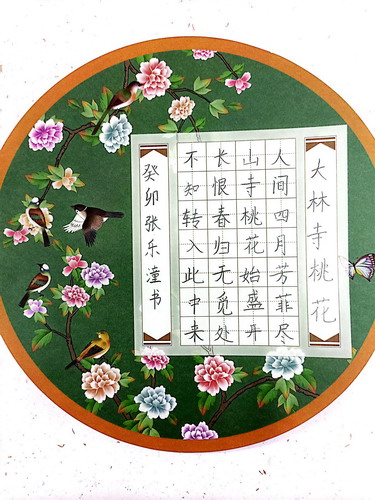 大林寺桃花
人间四月芳菲尽
山寺桃花始盛开
长恨春归无觅处
不知转入此中来
癸卯张乐潼书